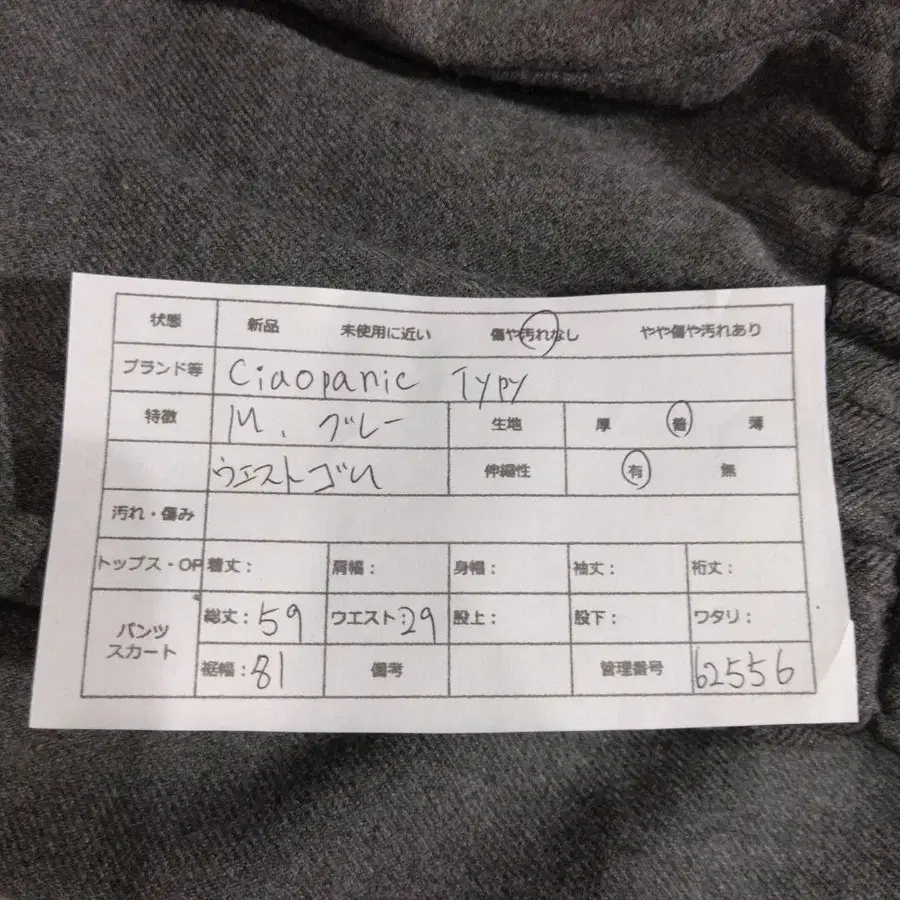 状態 新品 未使用に近い 傷や汚れなし やや傷や汚れあり
ブランド等 Ciaopanic Typy
特徴 M. グレー 生地 厚 普 薄
ウエストゴム 伸縮性 有 無
汚れ・傷み
トップス・OP 着丈: 肩幅: 身幅: 袖丈: 裄丈:
パンツ スカート 総丈: 59 ウエスト: 29 股上: 股下: ワタリ:
裾幅: 81 備考 管理番号 62556